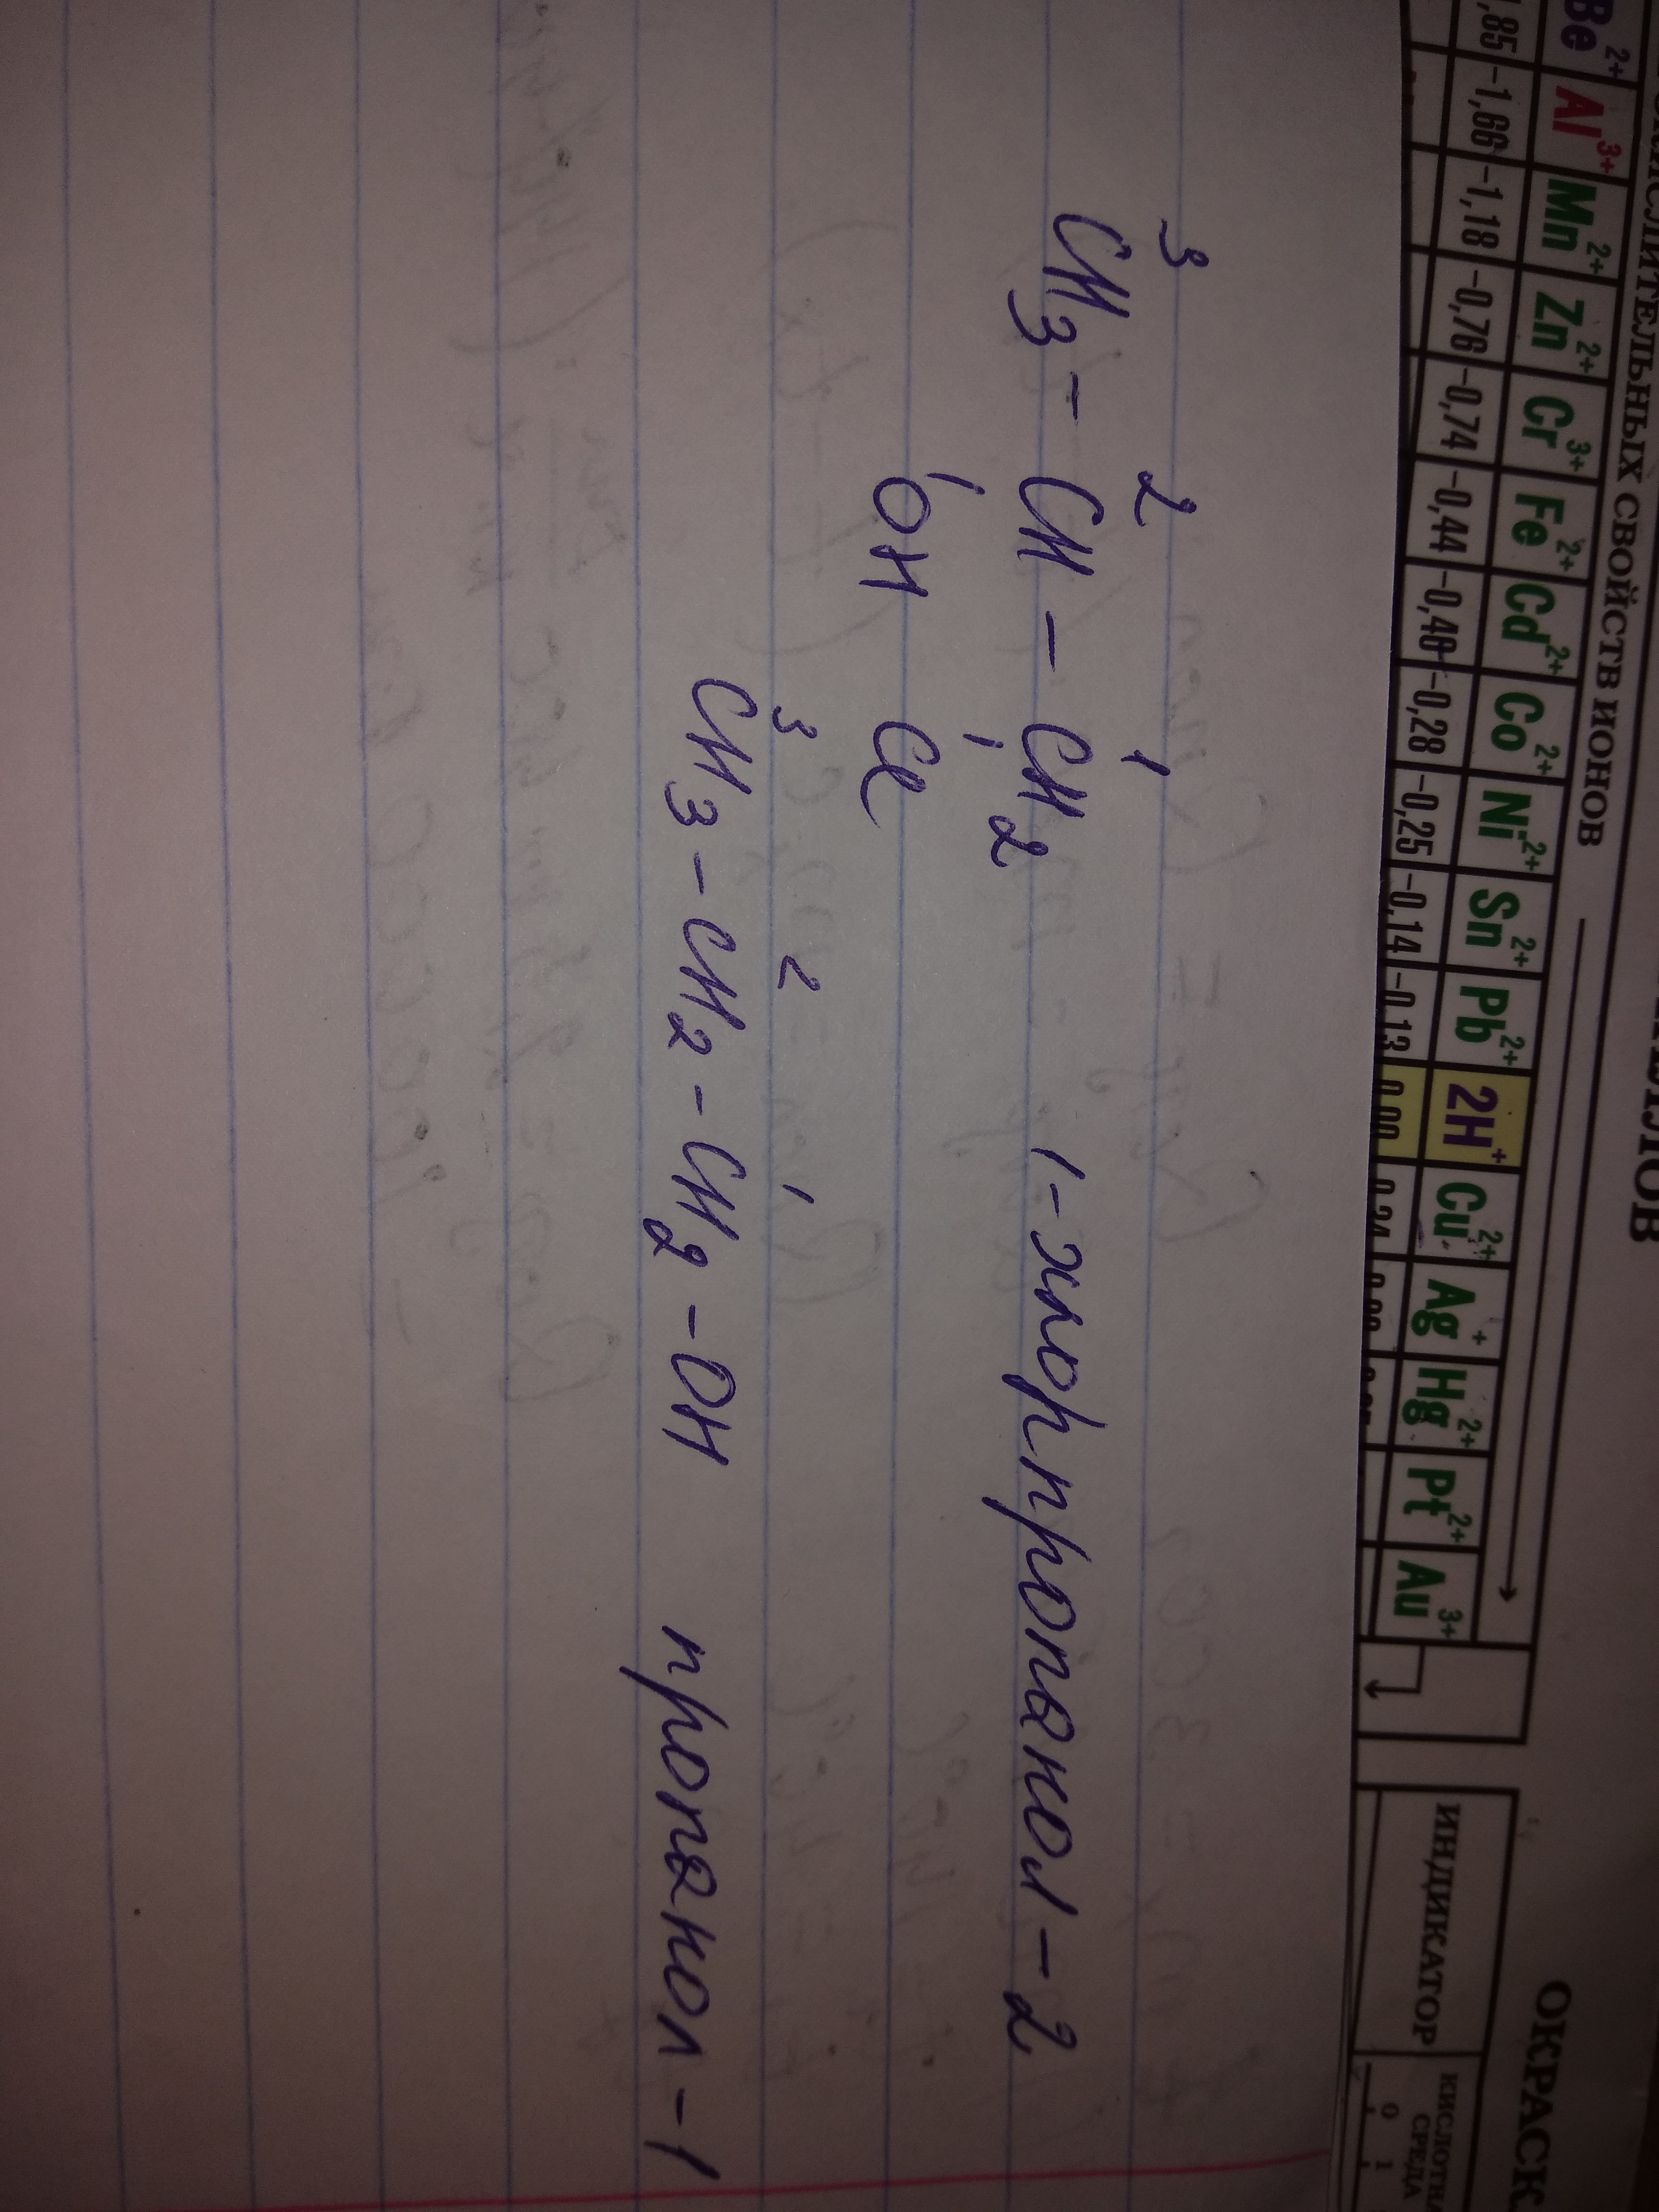 ОКИСЛИТЕЛЬНЫХ СВОЙСТВ ИОНОВ
Be2+ Al3+ Mn2+ Zn2+ Cr3+ Fe2+ Cd2+ Co2+ Ni2+ Sn2+ Pb2+ 2H+ Cu2+ Ag+ Hg2+ Pt2+ Au3+
,85 –1,66 –1,18 –0,76 –0,74 –0,44 –0,40 –0,28 –0,25 –0,14 –0,13 0,00
ОКРАСК
ИНДИКАТОР
КИСЛОТН
СРЕДА
0 1
3 2 1
CH3 – CH – CH2 1-хлорпропанол-2
OH Cl
3 2 1
CH3 – CH2 – CH2 – OH пропанол-1